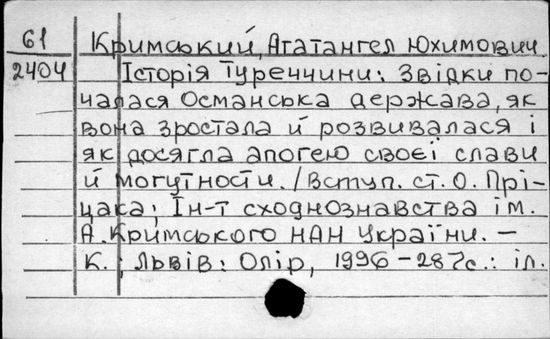 61 Кримський, Агатангел Юхимович.
2404 Історія Туреччини: Звідки по-
чалася Османська держава, як
вона зростала й розвивалася і
як досягла апогею своєї слави
й могутности. /Вступ. ст. О. Прі-
цака; Ін-т сходнознавства ім.
А. Кримського НАН України. –
К.; Львів: Олір, 1996 – 287с.: іл.